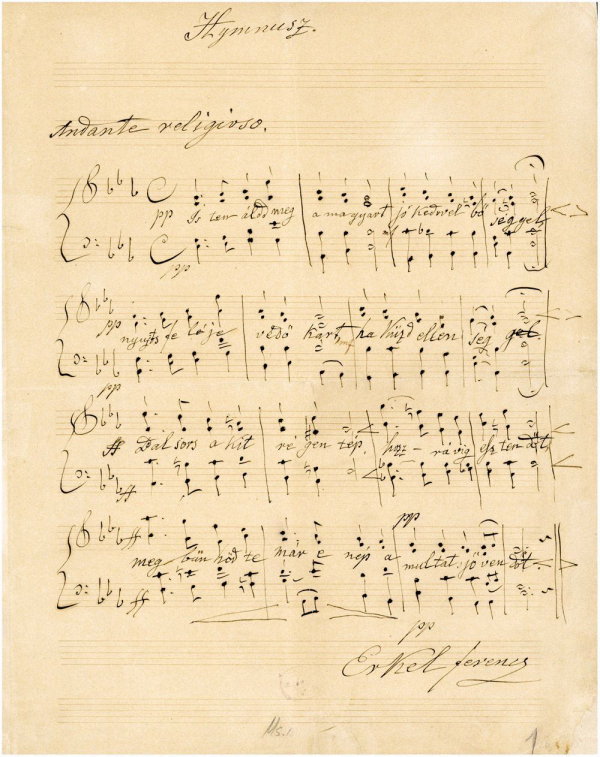 Hymnusz.
Andante religioso.
pp Is ten áldd meg a magyart jó kedvvel bő séggel
pp
pp nyujts fe lé je védő kart, ha küzd ellen ség gel
pp
ff Bal sors a kit ré gen tép, hoz - rá víg esz ten dőt,
ff
ff pp
meg bűn hőd te már e nép a multat jö ven dőt.
ff
pp
Erkel ferencz
Ms. 1